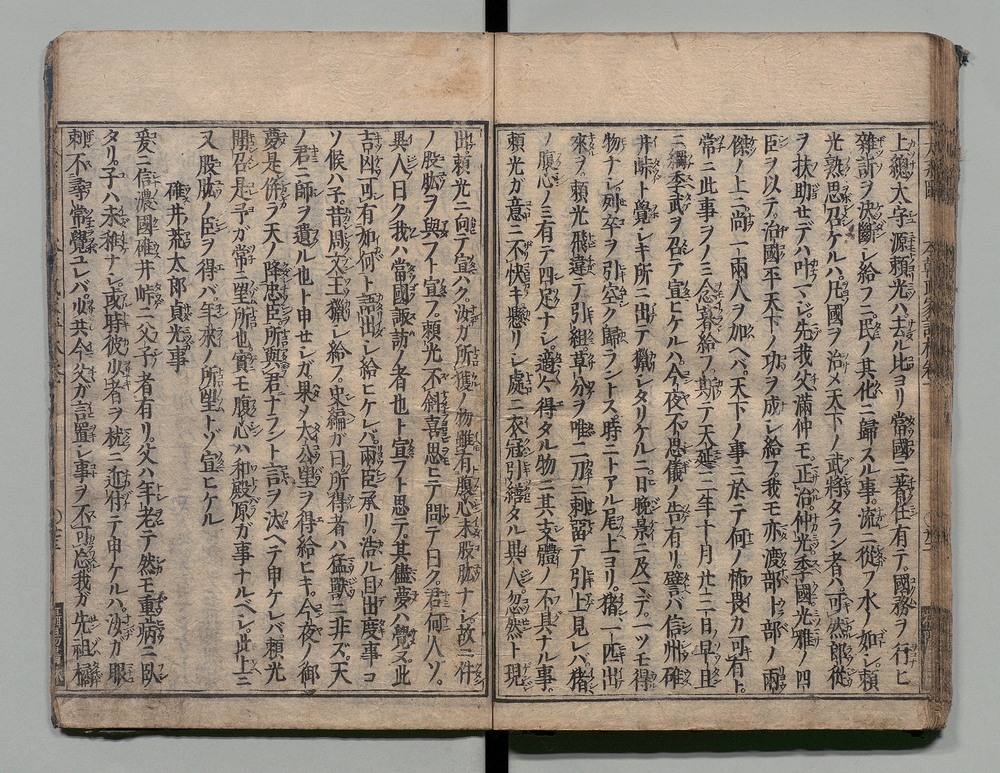 上總太守源頼光ハ去ル比ヨリ常國ニ著任有テ。國務ヲ行ヒ
雜訴ヲ決斷シ給フニ。民ノ其化ニ歸スル事。流ニ從フ水ノ如シ。頼
光熟思召ケルハ。凡國ヲ治メ天下ノ武將タラン者ハ。可然郎從
ヲ扶助セデハ叶マジ。先我父滿仲モ。正治。仲光。季國。光雅ノ四
臣ヲ以テ。治國平天下ノ功ヲ成シ給フ我モ亦渡部卜部ノ兩
傑ノ上ニ尚一兩人ヲ加ヘバ。天下ノ事ニ於テ何ノ怖畏カ可有ト。
常ニ此事ヲノミ念暮給フ。斯テ天延二年十月廿二日早旦
ニ綱季武ヲ召テ宣ヒケルハ。今夜不思儀ノ告有リ。譬バ信州碓
井峠ト覺シキ所ニ出テ獵シタリケルニ。日晩景ニ及マデ。一ツモ得
物ナシ。列卒ヲ引空ク歸ラントス。時ニトアル尾上ヨリ。猪一匹出
來ヲ。頼光飛違テ引組草分ヲ唯二刀ニ刺留テ引上見レバ猪
ノ腹心ノミ有テ四足ナシ。適々得タル物ニ其支體ノ不具ナル事。
頼光ガ意ニ不快キ懸リシ處ニ衣冠引繕タル異人。忽然ト現
出。頼光ニ向テ宣ハク。汝ガ所獲ノ物雖有腹心未股肱ナシ。故ニ件
ノ股肱ヲ與フト宣フ。頼光不斜喜思ヒテ問テ曰ク。君何人ソ。
異人曰ク我ハ當國諏訪ノ者也ト宣フト思テ。其儘夢ハ覺ヌ。此
吉凶可有如何ト語出シ給ヒケレバ。兩臣承リ。浩ル目出度事コ
ソ候ハ子。昔周文王獵シ給フ。史編ガ曰所得者ハ猛獸ニ非ズ。天
ノ君ニ師ヲ遺ル也ト申セシガ。果ソ太公望ヲ得給ヒキ。今夜ノ御
夢是併ラ天ノ降忠臣所與君ナラント言ヲ汰ヘテ申ケレバ。頼光
聞召是予ガ常ニ望所也實モ腹心ハ和殿原ガ事ナルベシ此上ニ
又股肱ノ臣ヲ得バ年來ノ所望トゾ宣ヒケル
碓井荒太郎貞光事
爰ニ信濃國碓井峠ニ父子ノ者有リ。父ハ年老テ然モ重病ニ臥
タリ。子ハ未稚ナシ。或時彼父者ヲ枕ニ近付テ申ケルハ。汝ガ服
剌不尋常覺ユレバ。必共今父ガ言置シ事ヲ不可忘我ガ先祖橘